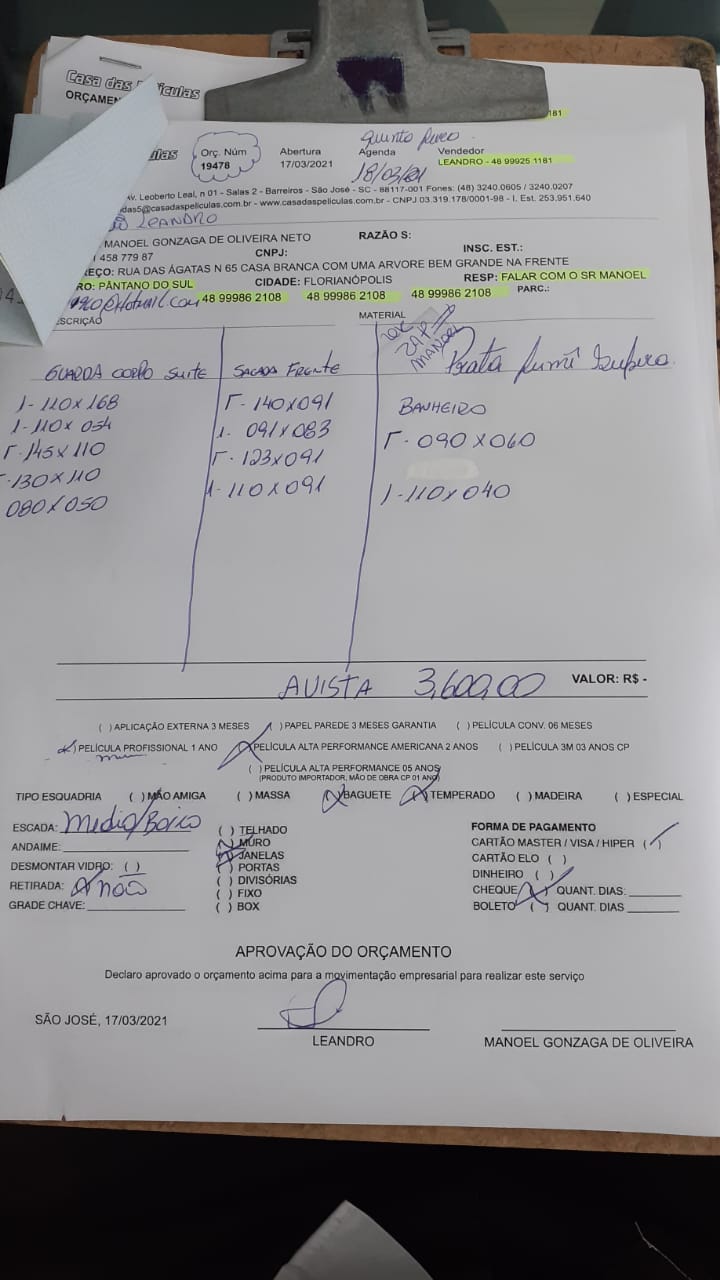 Casa das Películas
ORÇAMEN
181
Orç. Núm
19478
Abertura
17/03/2021
Agenda
18/03/21
Vendedor
LEANDRO - 48 99925 1181
Av. Leoberto Leal, n 01 - Salas 2 - Barreiros - São José - SC - 88117-001 Fones: (48) 3240.0605 / 3240.0207
das5@casadaspeliculas.com.br - www.casadaspeliculas.com.br - CNPJ 03.319.178/0001-98 - I. Est. 253.951.640
LEANDRO
MANOEL GONZAGA DE OLIVEIRA NETO
RAZÃO S:
458 779 87
CNPJ:
INSC. EST.:
REÇO: RUA DAS ÁGATAS N 65 CASA BRANCA COM UMA ARVORE BEM GRANDE NA FRENTE
RO: PÂNTANO DO SUL
CIDADE: FLORIANÓPOLIS
RESP: FALAR COM O SR MANOEL
@Hotmail.com
48 99986 2108
48 99986 2108
48 99986 2108
PARC.:
ESCRIÇÃO
MATERIAL
ZAP
MANOEL
GUARDA CORPO SUITE
SACADA FRENTE
Prata fumê
1-110x168
1-110x054
145x110
130x110
080x050
140x091
1- 091x083
123x091
1-110x091
BANHEIRO
090x060
1-110x040
AVISTA 3,600,00
VALOR: R$ -
( ) APLICAÇÃO EXTERNA 3 MESES ( ) PAPEL PAREDE 3 MESES GARANTIA ( ) PELÍCULA CONV. 06 MESES
(x) PELÍCULA PROFISSIONAL 1 ANO (x) PELÍCULA ALTA PERFORMANCE AMERICANA 2 ANOS ( ) PELÍCULA 3M 03 ANOS CP
( ) PELÍCULA ALTA PERFORMANCE 05 ANOS
(PRODUTO IMPORTADOR, MÃO DE OBRA CP 01 ANO)
TIPO ESQUADRIA ( ) MÃO AMIGA ( ) MASSA (x) BAGUETE (x) TEMPERADO ( ) MADEIRA ( ) ESPECIAL
ESCADA: Medio/Baixo
ANDAIME:
DESMONTAR VIDRO: ( )
RETIRADA: não
GRADE CHAVE:
( ) TELHADO
(x) MURO
(x) JANELAS
( ) PORTAS
( ) DIVISÓRIAS
( ) FIXO
( ) BOX
FORMA DE PAGAMENTO
CARTÃO MASTER / VISA / HIPER ( )
CARTÃO ELO ( )
DINHEIRO ( )
CHEQUE ( ) QUANT. DIAS:
BOLETO ( ) QUANT. DIAS
APROVAÇÃO DO ORÇAMENTO
Declaro aprovado o orçamento acima para a movimentação empresarial para realizar este serviço
SÃO JOSÉ, 17/03/2021
LEANDRO
MANOEL GONZAGA DE OLIVEIRA